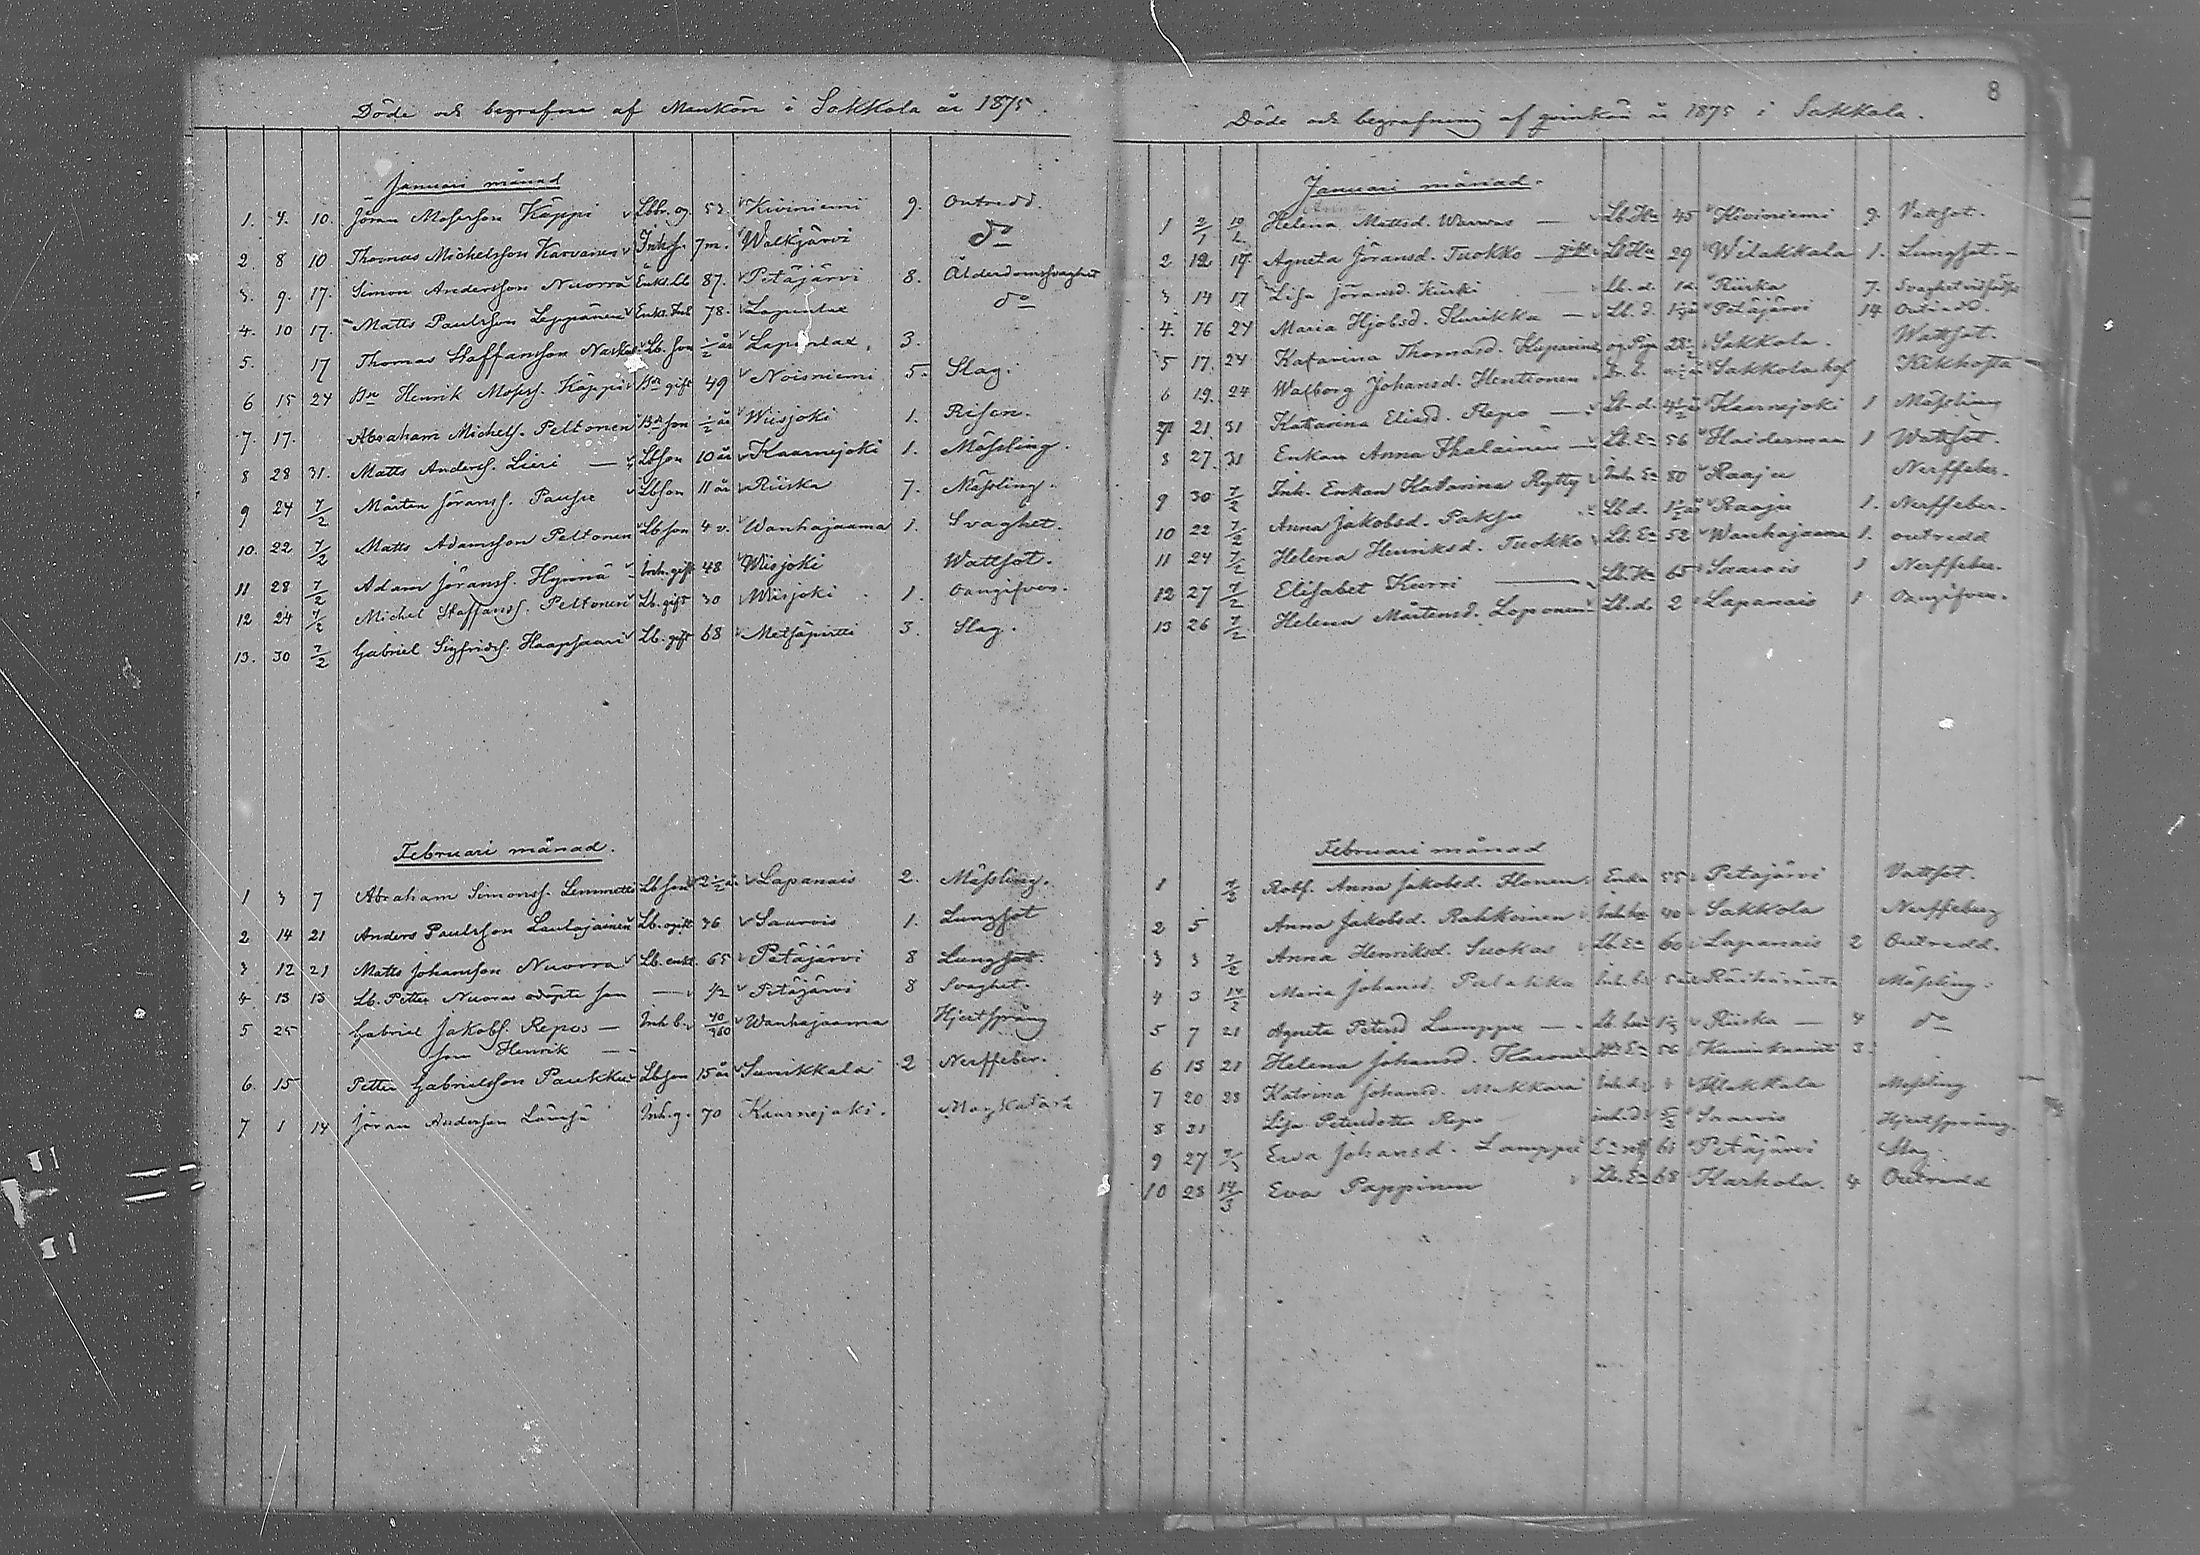 Döde och begrafne af Mankön i Sakkola år 1875.
Januari månad
1. 4. 10. Jöran Mosesson Käppi Lbbr. og 52 Kiviniemi 9. outredd.
2. 8 10 Thomas Michelsson Karvanen Inh. s. 7 m. Walkjärvi do
3. 9. 17. Simon Andersson Nuorra Enkl. Lb 87. Petäjärvi 8. Ålderdomssvaghet
4. 10 17. Matts Paulsson Leppänen Enkl. Inh 78. Lapinlax do
5. 17 Thomas Staffansson Lb. son 1/2 år Lapinlax, 3.
6 15 24 Bn Henrik Moses. Käppi Bn gift 49 Noisniemi 5. Slag.
7. 17. Abraham Michels. Peltonen Bn son 1/2 år Wiisjoki 1. Risen.
8 28 31. Matts Anders. Lieri — Lb son 10 år Kaarnejoki 1. Mässling.
9 24 7/2 Mårten Jörans. Pausu Lb son 11 år Riiska 7. Mässling.
10. 22 7/2 Matts Adamsson Peltonen Lb son 4 v. Wanhajaama 1. Svaghet.
11 28 7/2 Adam Jörans. Hynnä Inh. gift 48 Wiisjoki Wattsot.
12 24 7/2 Michel Staffans. Peltonen Lb. gift 30 Wiisjoki 1. oangifven.
13. 30 7/2 Gabriel Sigfrids. Haapsaari Lb. gift 68 Metsäpirtti 3. Slag.
Februari månad.
1 3 7 Abraham Simons. Lemmetti Lb son 2 1/2 å. Lapanais 2. Mässling.
2 14 21 Anders Paulsson Laulajainen Lb. ogift 36 Saarois 1. Lungsot
3 12 21 Matts Johansson Nuorra Lb. enkl. 65 Petäjärvi 8 Lungsot.
4 13 13 Lb. Petter Nuoras odöpte son — 1/2 Petäjärvi 8 Svaghet.
5 25 Gabriel Jakobs. Repos — Inh b. 40/360 Wanhajaama Hjertsprång
son Henrik —
6. 15 Petter Gabrielsson Paukku Lb son 15 år Sunikkala 2 Nerffeber.
7 1 14 Jöran Andersson Länsä Inh. g. 70 Kaarnejoki. Magkatarr
8
Döde och begrafning af qvinkön år 1875 i Sakkola.
Januari månad.
Anna
1 2/1 10/1 Helena Mattsd. Warwas — Lb. Hu 45 Kiviniemi 9. Vattsot.
2 12 17. Agneta Jöransd. Tuokko — gift Lb Hu 29 Wilakkala 1. Lungsot. —
3 14 17 Lisa Jöransd. Kiiski Lb. d. 1 d. Riiska 7. Svaghet vid födse
4. 16 24 Maria Hjobsd. — Lb. d. Petäjärvi 14 Outredd.
5 17. 24 Katarina Thomasd. Kuparine og Pga 28 1/2 Sakkola. Wattsot.
6 19. 24 Walborg Johansd. Hentionen Sakkola hof Kikhosta —
7 21. 31 Katarina Eliasd. Repo — Lb. d. 4 1/2 Kaarnejoki 1 Mässling
8 27. 31 Enkan Anna — Lb. Ea 56 Haiderman 1 Wattsot.
9 30 7/2 Inh. Enkan Katarina Rytty Inh. Ea 80 Raaju Nerffeber.
10 22 7/2 Anna Jakobsd. Paksu Lb d. Raaju 1. Nerffeber.
11 24 7/2 Helena Henriksd. Tuokko Lb. Ea 52 Wanhajaama 1. outredd
12 27 7/2 Elisabet Kurri — Lb. Hu 65 Saarois 1 Nerffeber.
13 26 7/2 Helena Mårtensd. Loponen Lb. d. 2 Lapanais 1 Oangifven.
Februari månad
1 7/2 Anna Jakobsd. Enka 55 Petäjärvi Vattsot.
2 5 Anna Jakobsd. Rahkoinen Inh. hu 40 Sakkola Nerffeber
3 3 7/2 Anna Henriksd. Suokas Lb. Ea 60 Lapanais 2 Outredd.
4 3 14/2 Maria Johansd. Inh. b. Räihäranta Mässling.
5 7 21 Agneta Petersd Lamppu — Lb. Riiska — 4 do
6 13 21 Helena Johansd. Ea 56 3.
7 20 28 Katrina Johansd. Mukkara Inh. d. Mässling
8 21 Lisa Petersdotter Repo inh. d. 5/2 Saarois Hjertsprång.
9 27 7/3 Eva Johansd. Lamppu 61 Petäjärvi Slag.
10 28 14/3 Eva Pappinen Lb. Ea 68 Karkola. 4 Outredd